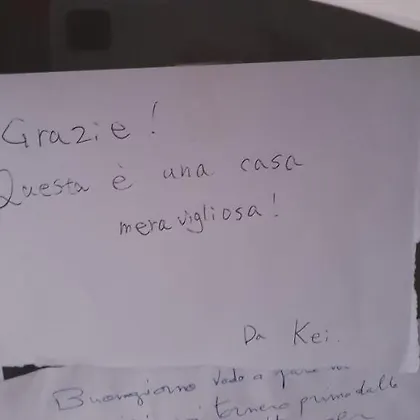 Grazie!
Questa è una casa
meravigliosa!
Da Kei.
Buongiorno Vado a
tornerò prima